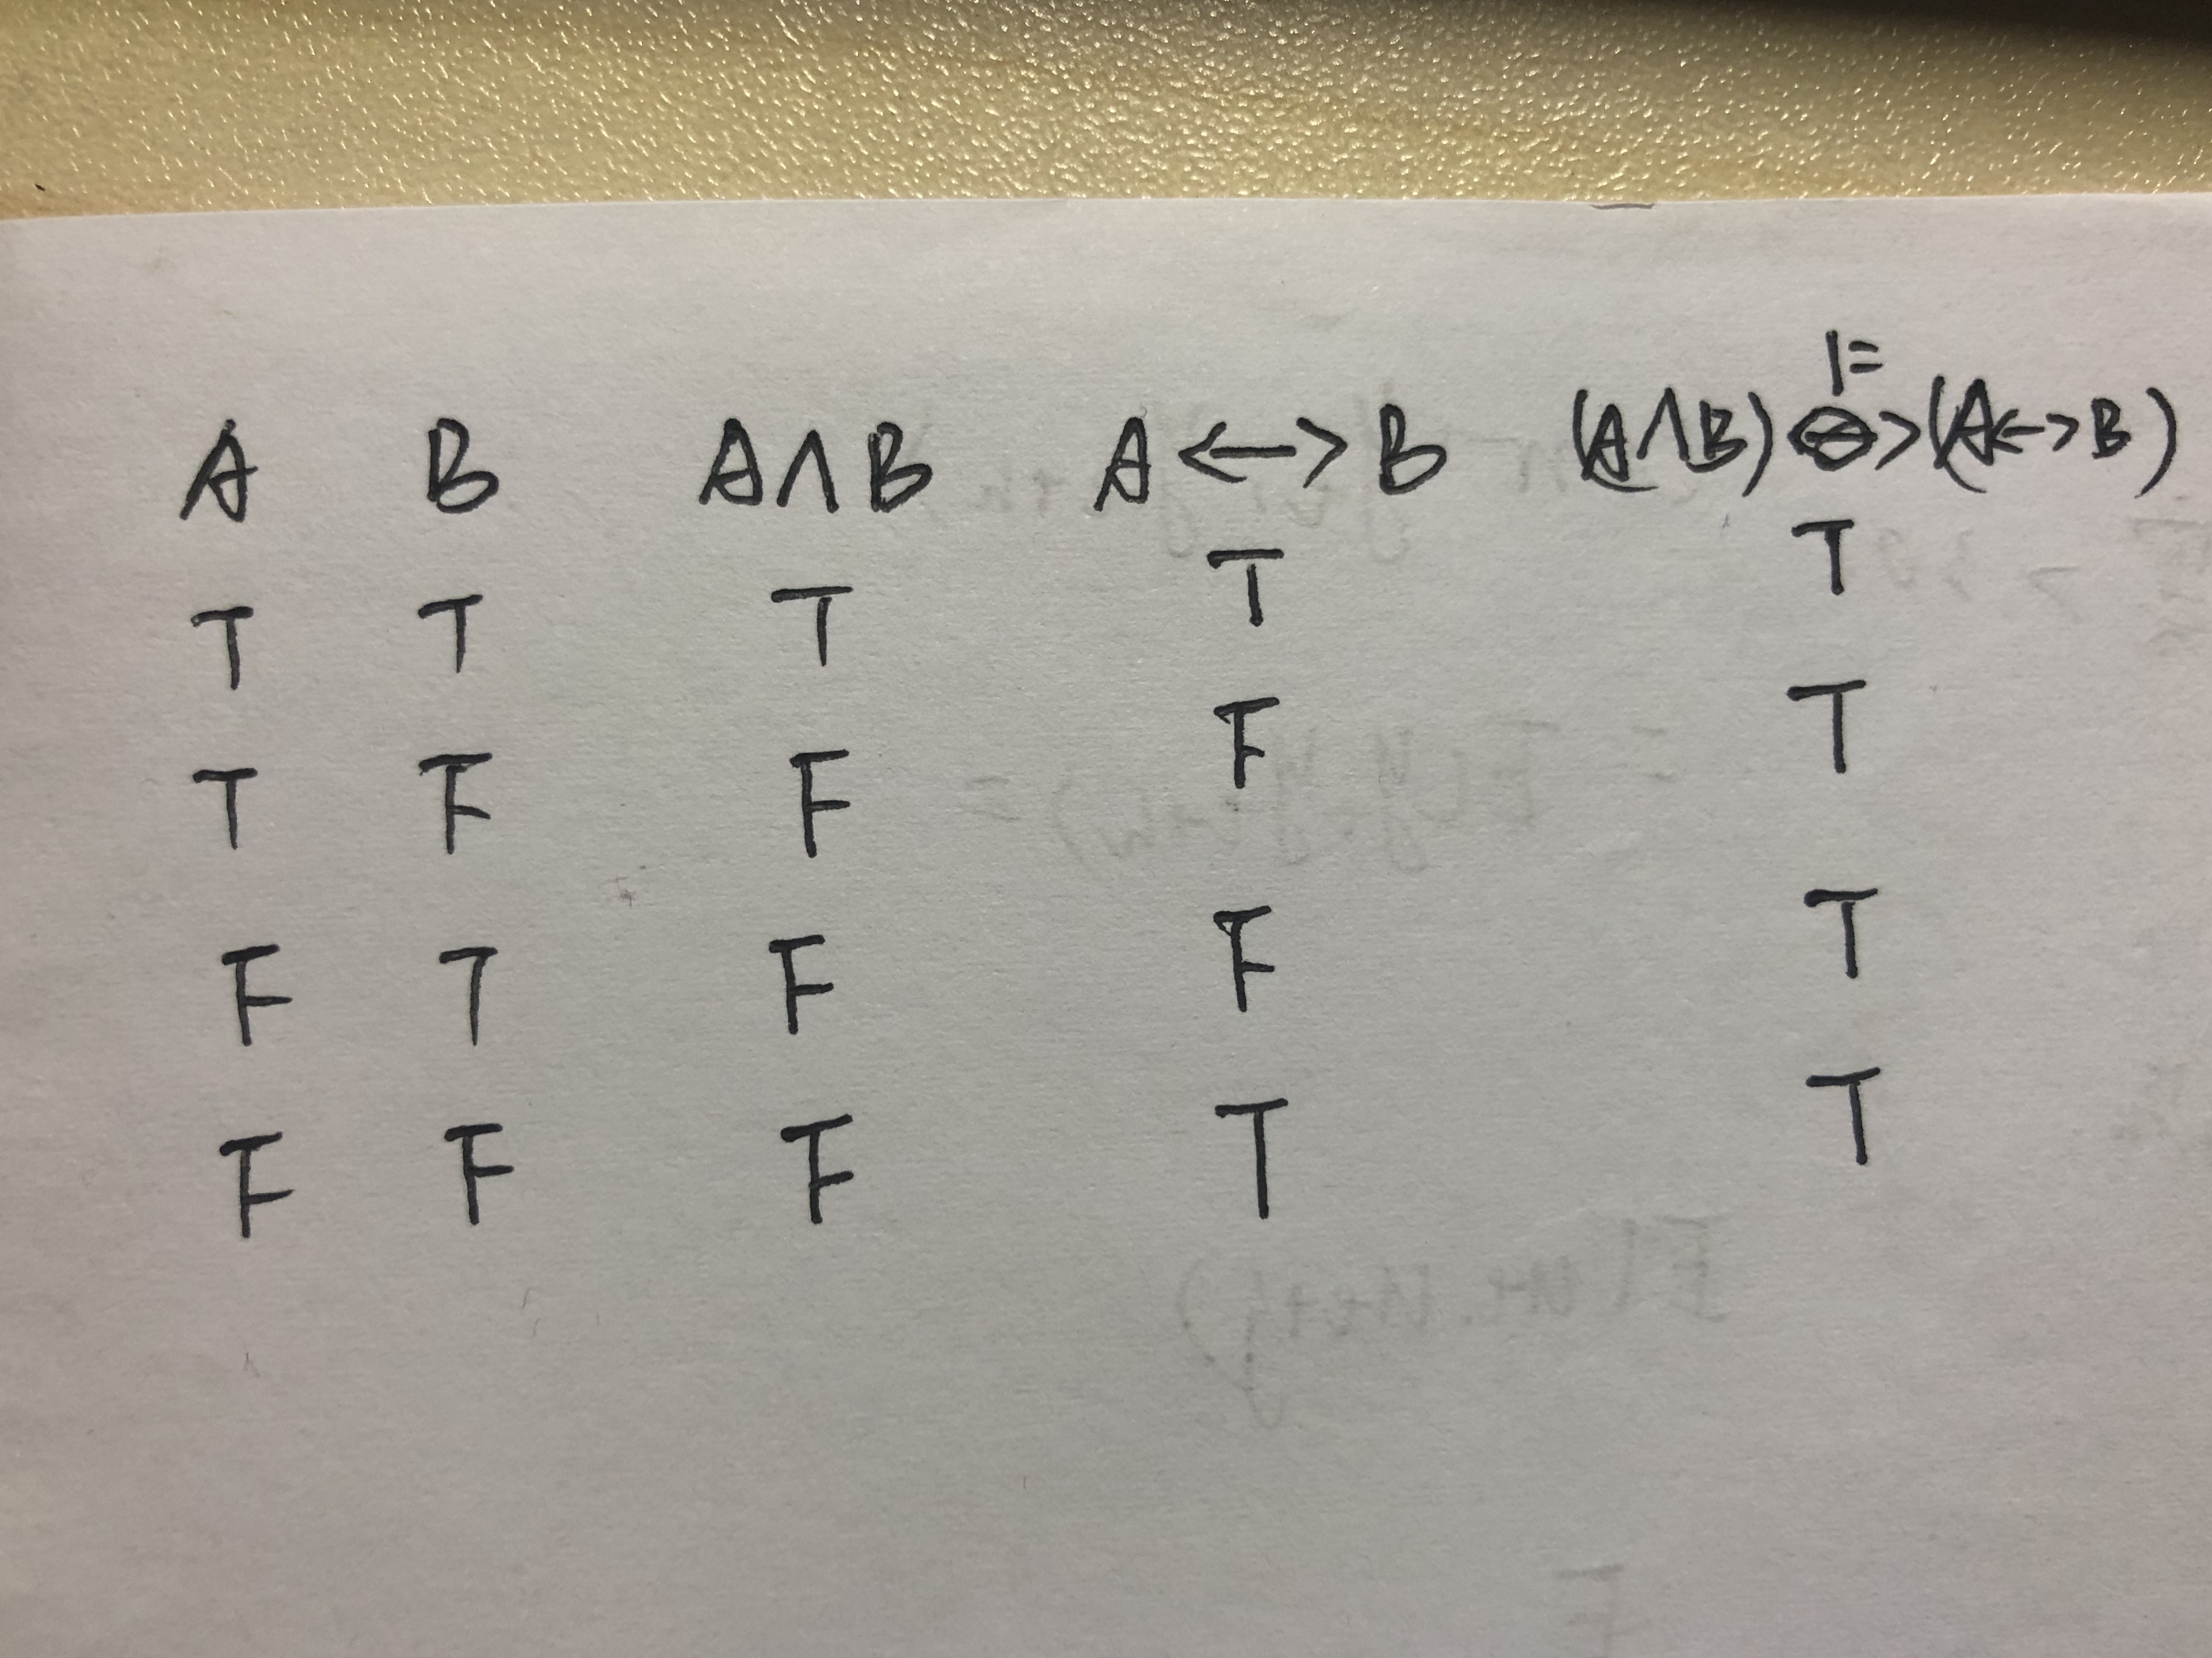 ⊨
A B A∧B A <—> B (A∧B) > (A<->B)
T T T T T
T F F F T
F T F F T
F F F T T